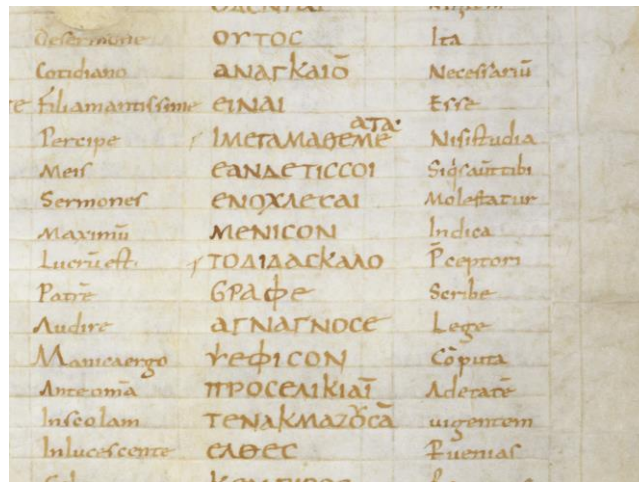 De sermone ΟΥΤΟC Ita
Cotidiano ΑΝΑΓΚΑΙΟ̄ Necessariū
Filiamantissime ΕΙΝΑΙ Esse
ΑΤΑ·
Percipe ΙΜΕΤΑΜΑΘΕΜΕ Nisistudia
Meis ΕΑΝΔΕΤΙCCΟΙ Siq̇sautē tibi
Sermones ΕΝΟΧΛΕΤΑΙ Molestatur
Maximū ΜΕΝΙCΟΝ Indica
Lucrūest· ΤΟΔΙΔΑCΚΑΛΟ P̄ceptori
Patrē GΡΑΦΕ Scribe
Audire ΑΓΝΑΓΝΟCΕ Lege
Manicaergo ΥΕΦΙCΟΝ Cōputa
Anteomīa ΠΡΟCΕΛΙΚΙΑῙ Adetatē
Inscolam ΤΕΝΑΚΜΑΖΟ̄CᾹ uigentem
Inlucescente ΕΛΘΕC Euenias